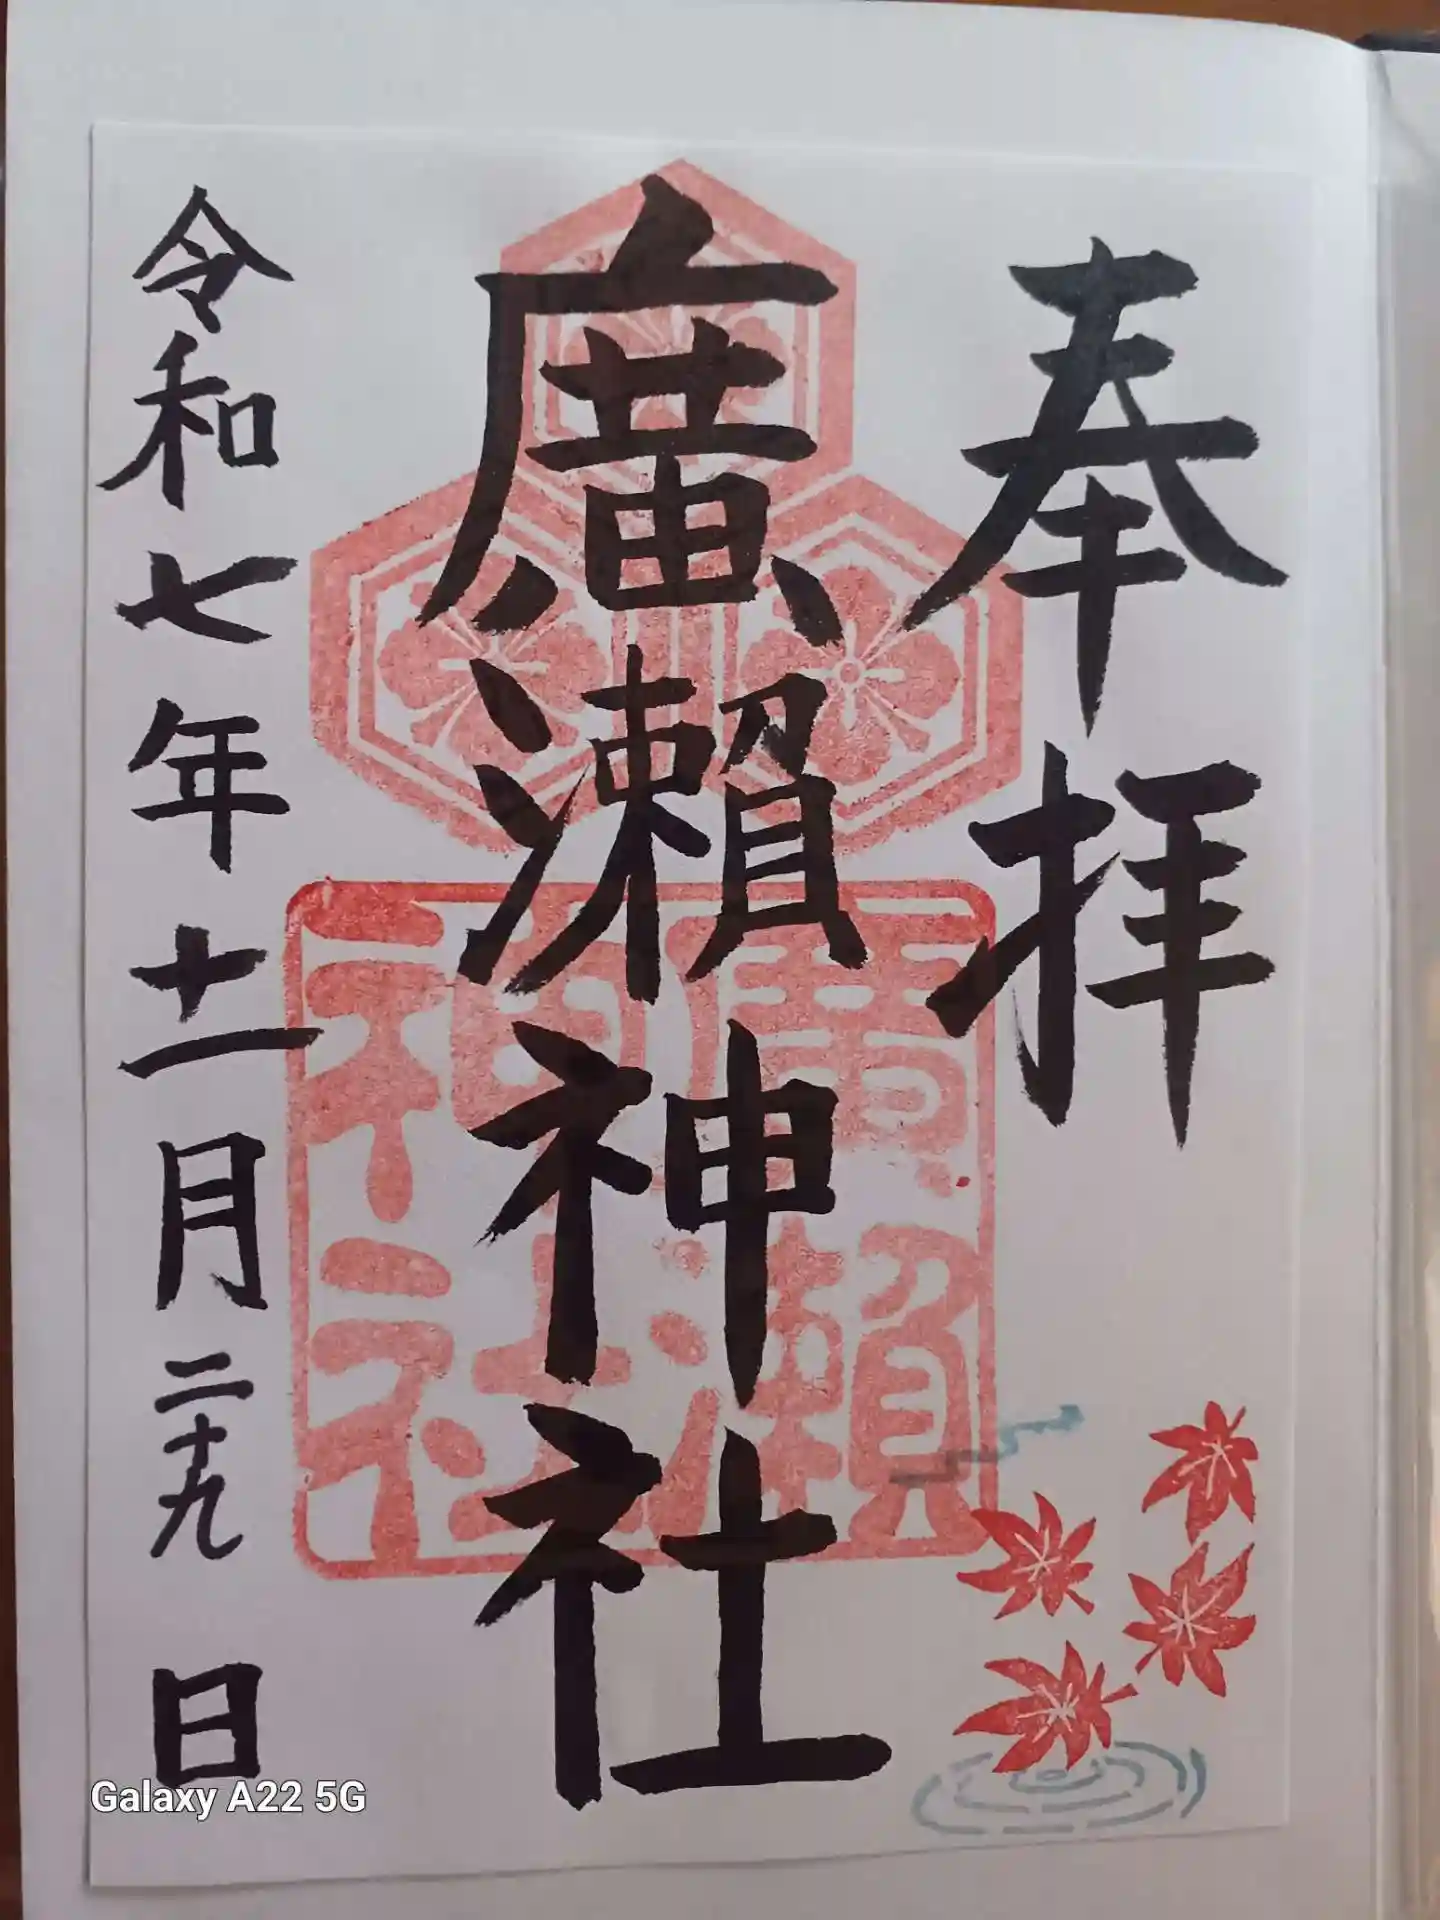 奉拝
廣瀬神社
廣瀬
神社
令和七年十一月二十九日
Galaxy A22 5G